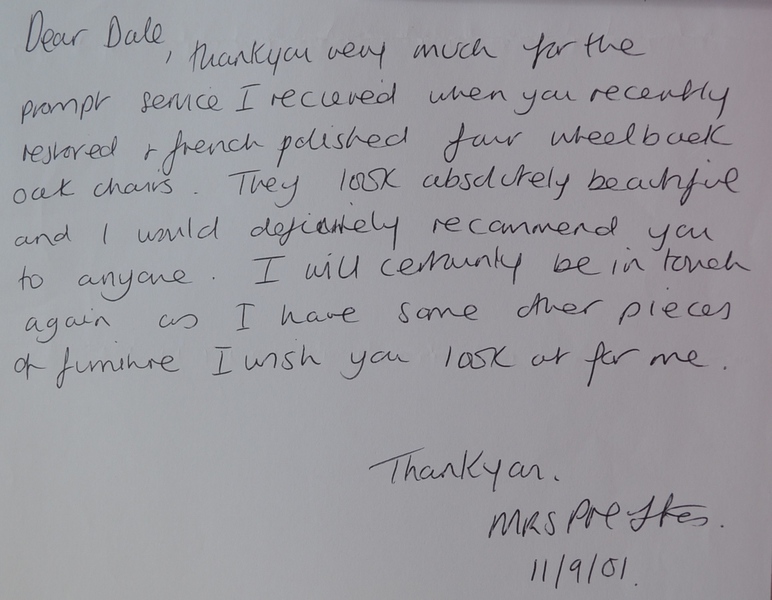 Dear Dale,
thankyou very much for the
prompt service I recieved when you recently
restored + french polished four wheelback
oak chairs. They look absolutely beautiful
and I would definitely recommend you
to anyone. I will certainly be in touch
again as I have some other pieces
of furniture I wish you look at for me.
Thankyou.
MRS
11/9/01.